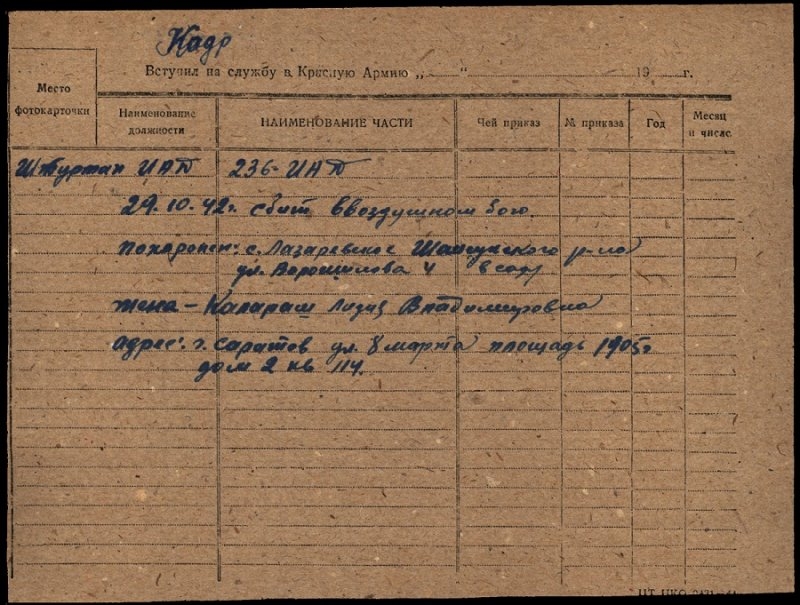 Кадр
Вступил на службу в Красную Армию „ “ 19 г.
Место
фотокарточки
Наименование
должности
НАИМЕНОВАНИЕ ЧАСТИ
Чей приказ
№ приказа
Год
Месяц
и число
Штурман ИАД 236 ИАД
29.10.42г. сбит ввоздушном бою.
похоронен: с. Лазаревское Шапсугского р-на
ул. Ворошилова 4 в саду
жена – Калараш Лидия Владимировна
адрес: г. Саратов ул. 8 марта площадь 1905г.
дом 2 кв 114.
ЦТ НКО